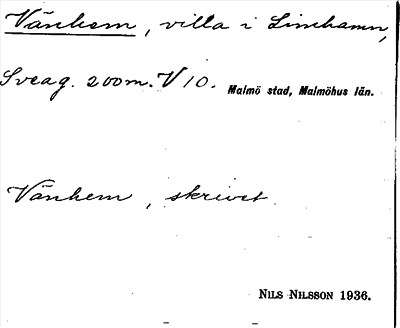 Vänhem, villa i Limhamn,
Sveag. 200 m. V 10. Malmö stad, Malmöhus län.
Vänhem, skrivet
NILS NILSSON 1936.